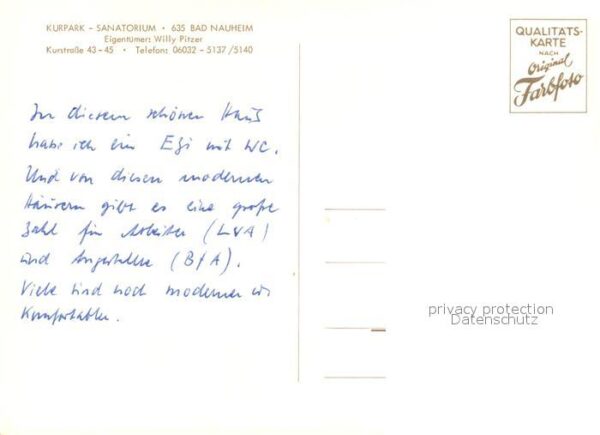 KURPARK - SANATORIUM • 635 BAD NAUHEIM
Eigentümer: Willy Pitzer
Kurstraße 43 - 45 • Telefon: 06032 - 5137/5140
QUALITÄTS-
KARTE
NACH
Original
Farbfoto
In diesem schönen Haus
habe ich ein EZi mit WC.
Und von diesen modernen
Häusern gibt es eine große
Zahl für Arbeiter (LVA)
und Angestellte (BfA).
Viele sind noch moderner
Komfortabler.
privacy protection
Datenschutz